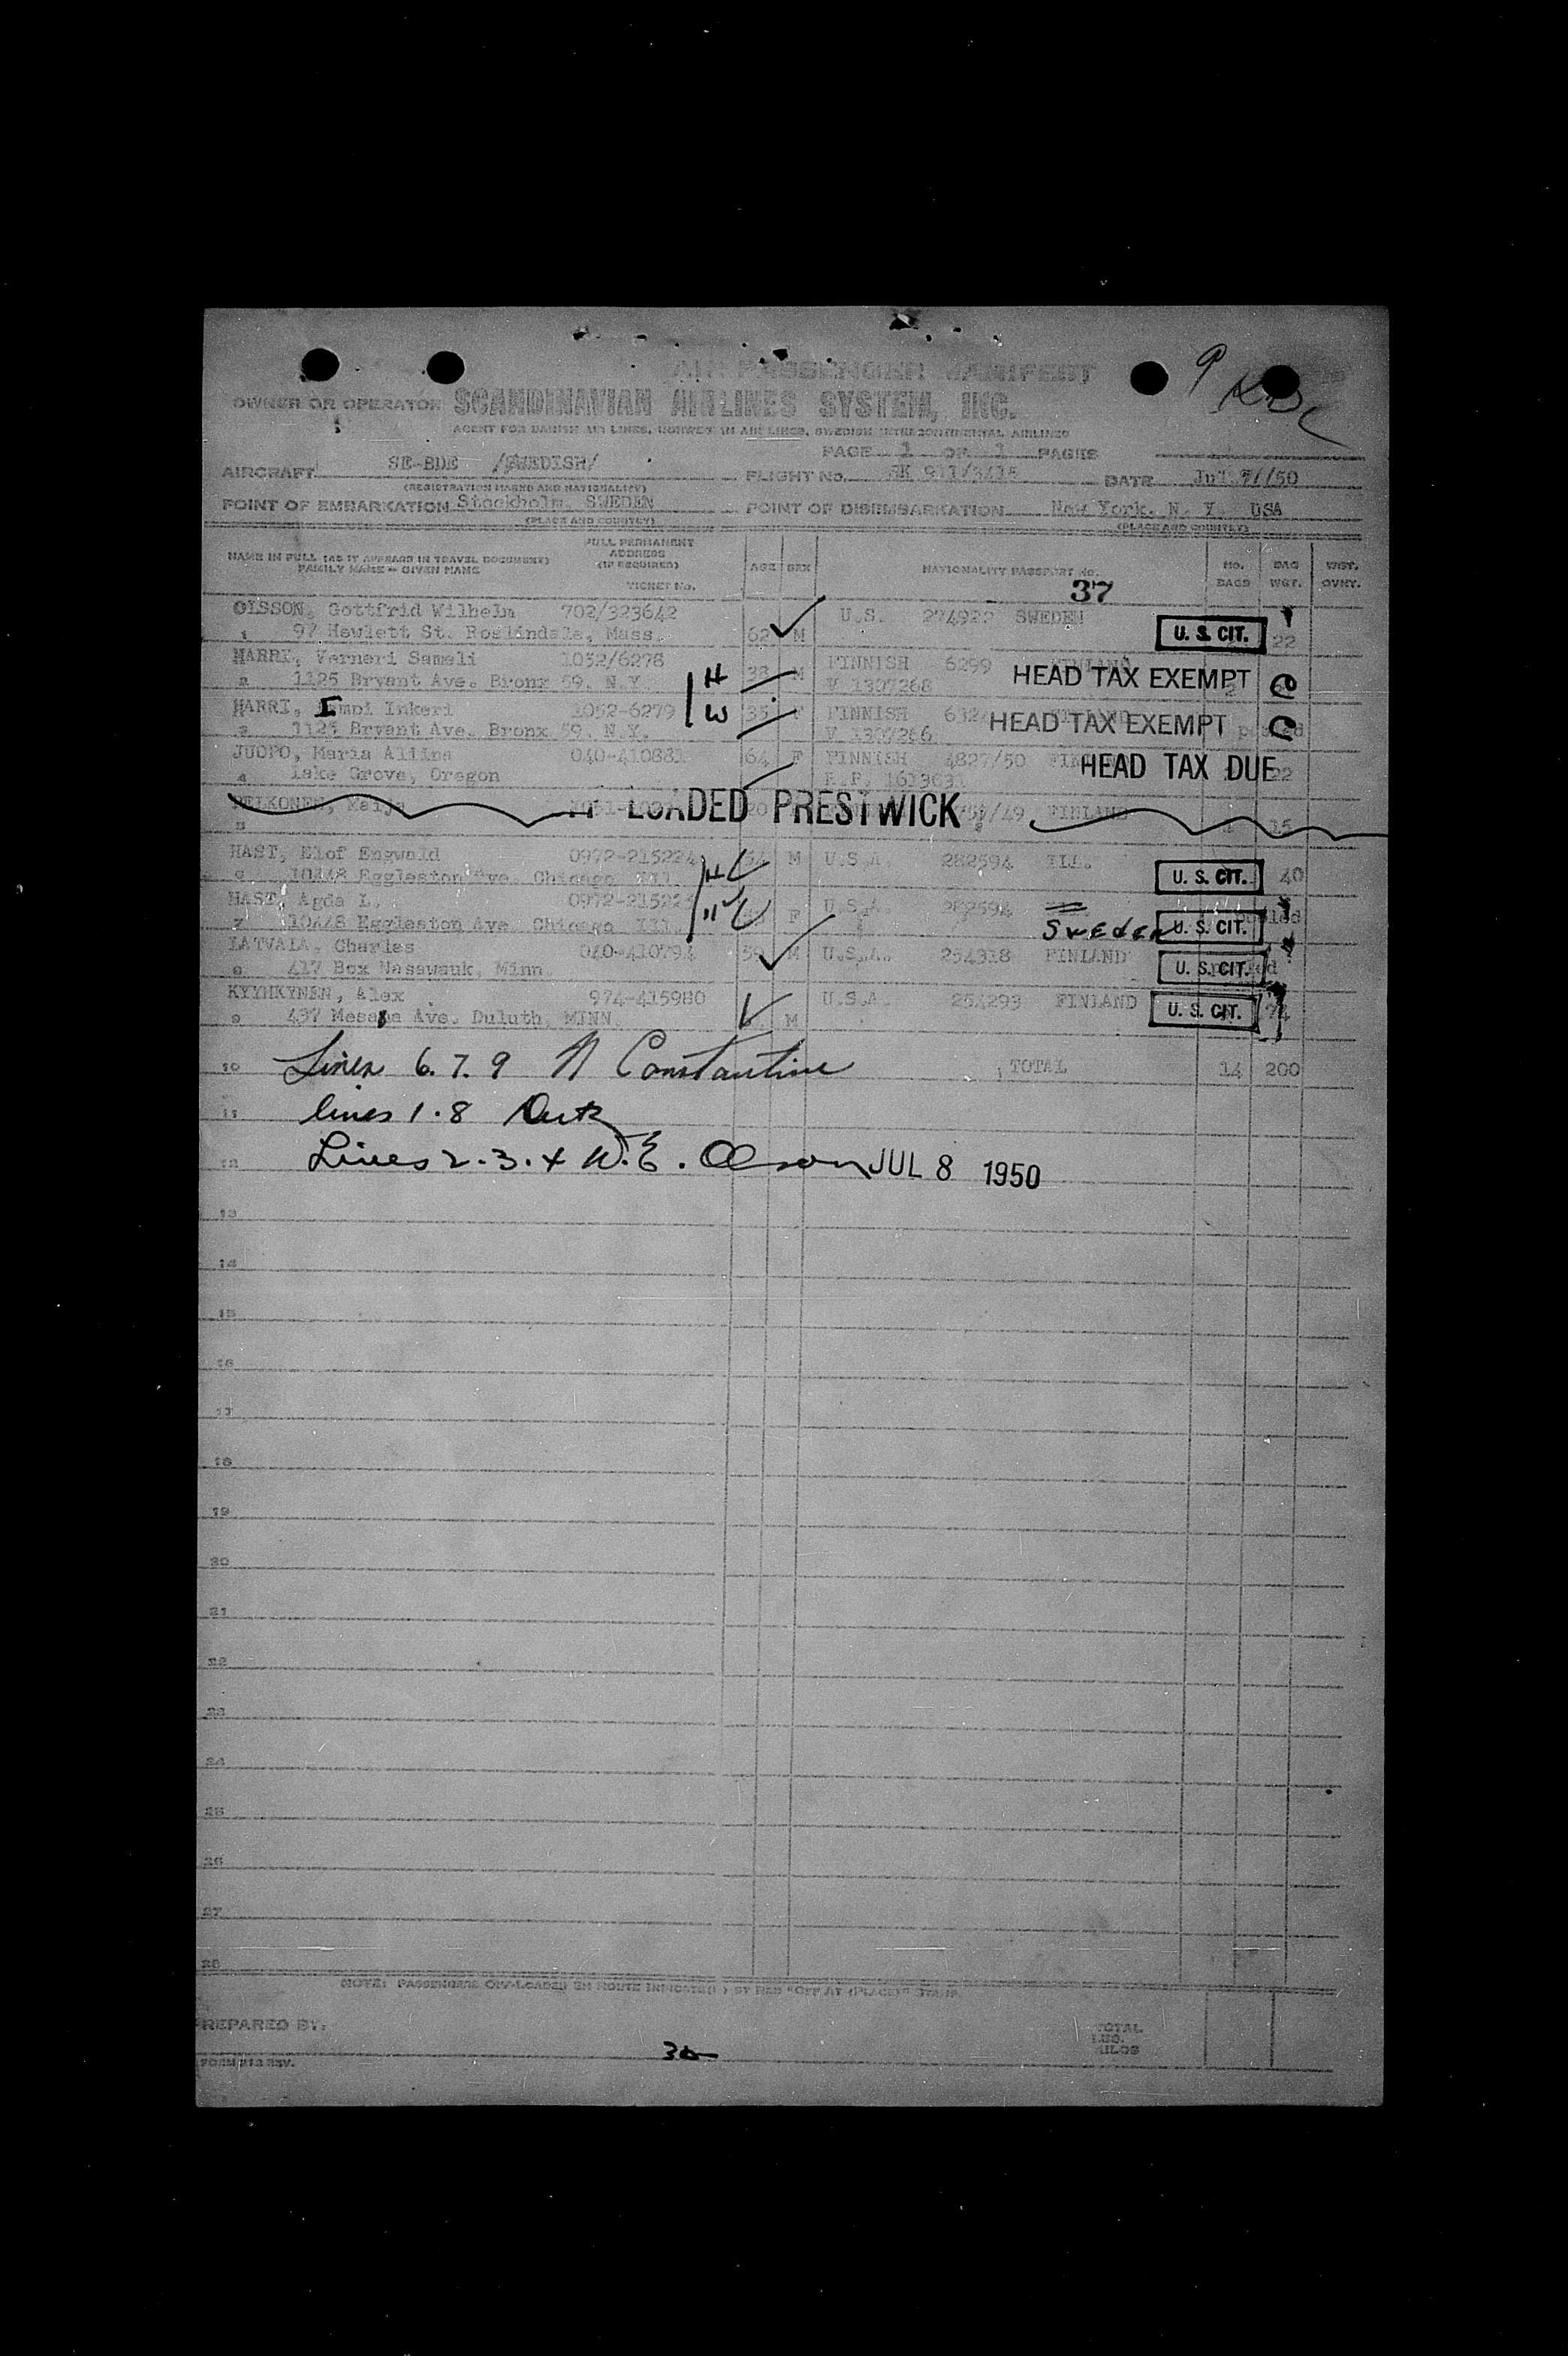 AIR PASSENGER MANIFEST
OWNER OR OPERATOR SCANDINAVIAN AIRLINES SYSTEM, INC.
AGENT FOR DANISH AIR LINES, NORWEGIAN AIR LINES, SWEDISH INTERCONTINENTAL AIRLINES
PAGE 1 OF 1 PAGES
AIRCRAFT SE-BDE /SWEDISH/ FLIGHT NO. SK 911/3415 DATE Jul 7/50
(REGISTRATION MARKS AND NATIONALITY)
POINT OF EMBARKATION Stockholm, SWEDEN POINT OF DISEMBARKATION New York, N. Y. USA
(PLACE AND COUNTRY) (PLACE AND COUNTRY)
NAME IN FULL (AS IT APPEARS IN TRAVEL DOCUMENT) FAMILY NAME - GIVEN NAME FULL PERMANENT ADDRESS (IF REQUIRED) TICKET NO. AGE SEX NATIONALITY PASSPORT No. NO. BAGS BAG WGT. WGT. OVWT.
37
OLSSON, Gottfrid Wilhelm 702/323642 U.S. SWEDEN
1 97 Hewlett St. Roslindale, Mass. 62 M U. S. CIT. 22
HARRI, Verneri Sameli 1052/6278 38 M FINNISH 6299
2 1125 Bryant Ave. Bronx 59. N.Y. H V 1307268 HEAD TAX EXEMPT
HARRI, Impi Inkeri 1052-6279 35 F FINNISH
3 1125 Bryant Ave. Bronx 59. N.Y. W V 1307266 HEAD TAX EXEMPT
JUOPO, Maria Aliina 040-410881 64 F FINNISH 4827/50
4 Lake Grove, Oregon HEAD TAX DUE 22
Maija LOADED PRESTWICK /49 FINLAND
5 15
HAST, Elof Engwald 0972-215224 M U.S.A. 282594 ILL.
6 10448 Eggleston Ave. Chicago Ill. H U. S. CIT. 40
HAST, Agda L. F U.S.A. 282594
7 10448 Eggleston Ave. Chicago Ill. SWEDEN U. S. CIT.
LATVALA, Charles 040-410794 M U.S.A. 254318 FINLAND
8 417 Box Nasawauk, Minn. U. S. CIT.
KYYHKYNEN, Alex 974-415980 U.S.A. FINLAND
9 437 Mesaba Ave. Duluth, MINN. M U. S. CIT.
10 Lines 6. 7. 9 N Constantine TOTAL 14 200
11 lines 1.8
12 Lines 2.3.4 W.E. Olson JUL 8 1950
13
14
15
16
17
18
19
20
21
22
23
24
25
26
27
28
NOTE: PASSENGERS OFF-LOADED EN ROUTE INDICATED BY RED "OFF AT (PLACE)" STAMP.
PREPARED BY: TOTAL LBS. KILOS